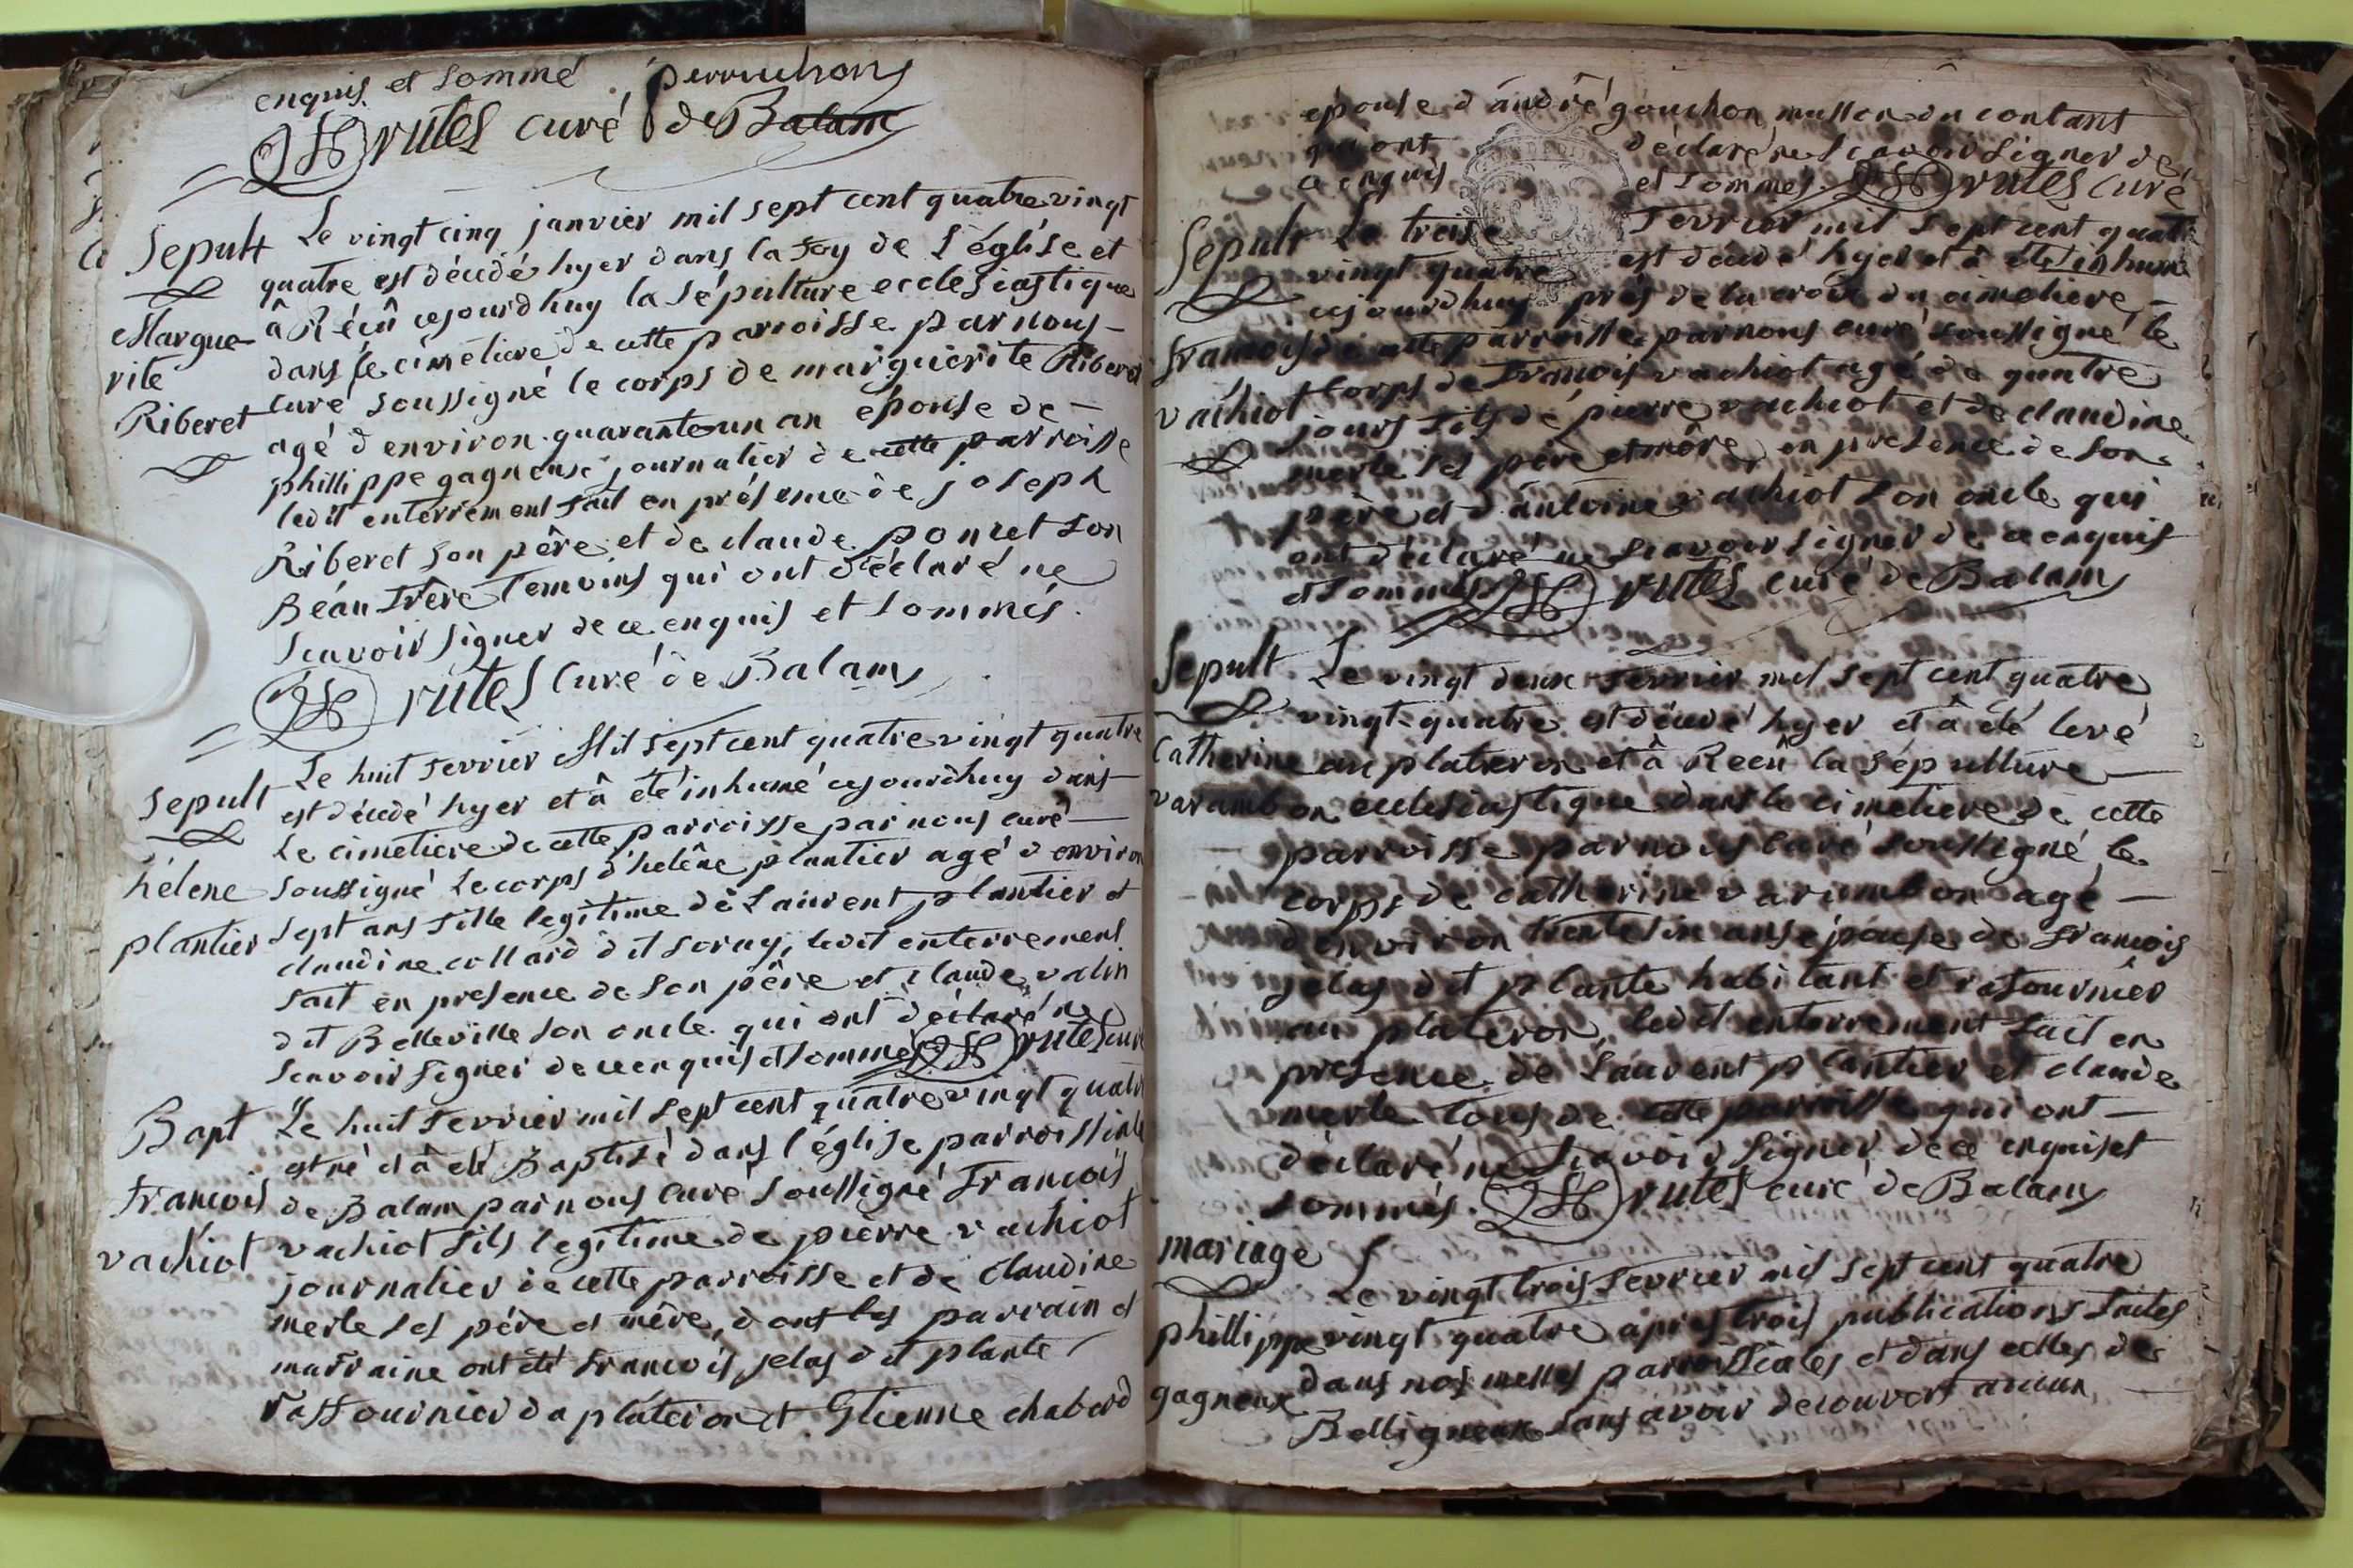 enquis et sommé perruchons
rutes curé de Balam
Sepult
Margue-
rite
Riberet
Le vingt cinq janvier mil sept cent quatre vingt
quatre est décédé hyer dans la foy de l'église et
â Réçû cejourdhuy la sépulture ecclesiastique
dans le cimetiere de cette parroisse par nous
curé soussigné le corps de marguerite Riberet
agé d'environ quarante un an épouse de
phillippe gagneux journalier de cette parroisse
ledit enterrement fait en présence de joseph
Riberet son père et de claude poncet son
Beau frère temoins qui ont déclaré ne
scavoir signer de ce enquis et sommés.
rutes Curé de Balam
Sepult
hélene
plantier
Le huit fevrier Mil sept cent quatre vingt quatre
est décédé hyer et â été inhumé cejourdhuy dans
le cimetiere de cette parroisse par nous curé
soussigné le corps d'helêne plantier agé d'environ
sept ans fille legitime de Laurent plantier et
claudine collard dit foray, ledit enterrement
fait en presence de son père et claude valin
dit Belleville son oncle qui ont déclaré ne
scavoir signer de ce enquis et sommés rutes curé
Bapt
francois
vachiot
Le huit fevrier mil sept cent quatre vingt quatre
est né et â été Baptisé dans l'église parroissiale
de Balam par nous Curé soussigné francois
vachiot fils legitime de pierre vachiot
journalier de cette parroisse et de claudine
merle ses père et mère, dont les parrain et
marraine ont été francois jelas dit plante
rafournier du plateron et Etienne chabord
épouse d'andré gouchon du contant
qui ont déclaré ne scavoir signer de
ce enquis et sommés rutes Curé
Sepult
francois
vachiot
Le treise fevrier mil sept cent quatre
vingt quatre est décédé hyer et â été inhumé
cejourdhuy près de la croix du cimetiere
de cette parroisse par nous curé soussigné le
corps de francois vachiot agé de quatre
jours fils de pierre vachiot et de claudine
merle ses père et mère, en presence de son
père et d'antoine vachiot son oncle qui
ont déclaré ne scavoir signer de ce enquis
et sommés rutes curé de Balam
Sepult
Catherine
varambon
Le vingt deux fevrier mil sept cent quatre
vingt quatre est décedé hyer et â été levé
au plateron et â Reçû la sépulture
ecclesiastique dans le cimetiere de cette
parroisse par nous curé soussigné le
corps de catherine varambon agé
d'environ trente six ans épouse de francois
jelas dit plante habitant et rafournier
au plateron, ledit enterrement fait en
presence de Laurent plantier et claude
merle tous de cette parroisse qui ont
déclaré ne scavoir signer de ce enquis et
sommés. rutes curé de Balam
mariage
phillippe
gagneux
Le vingt trois fevrier mil sept cent quatre
vingt quatre après trois publications faites
dans nos messes parroissiales et dans celles de
Belligneux sans avoir découvert aucun